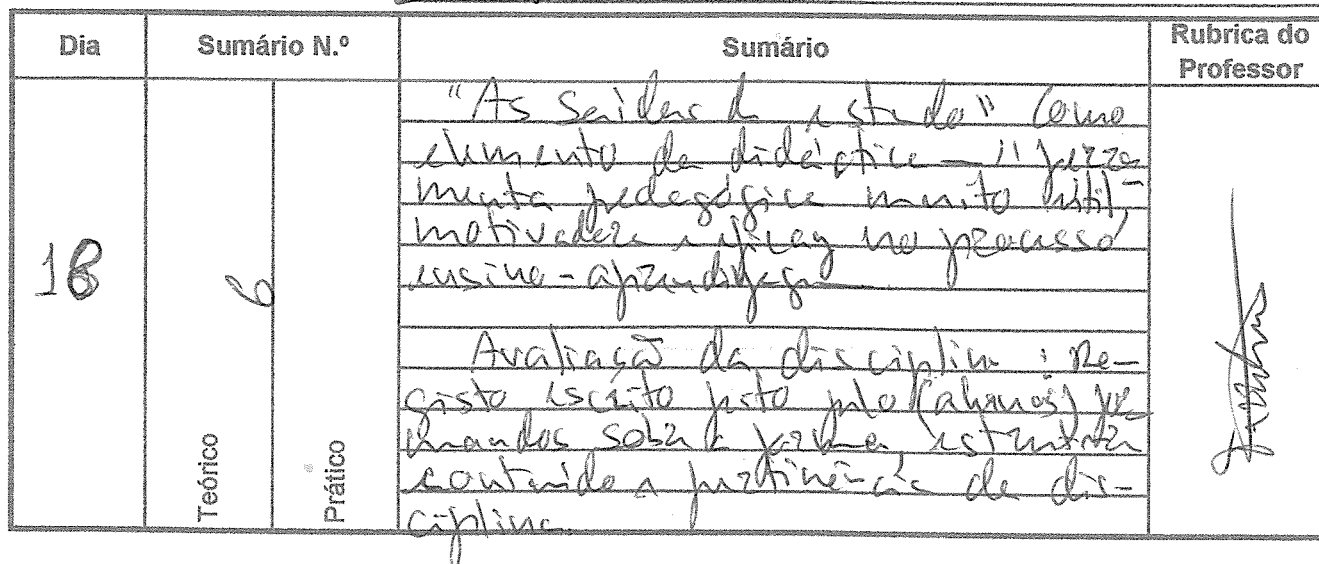 Dia
Sumário N.º
Sumário
Rubrica do
Professor
18
6
Teórico
Prático
"As Saídas de estudo" como
elemento da didáctica — " ferra-
menta pedagógica muito útil,
motivadora e eficaz no processo
ensino-aprendizagem
Avaliação da disciplina: Re-
gisto escrito feito pelo (alunos) for-
mandos sobre a forma, estrutura
conteúdo e pertinência da dis-
ciplina